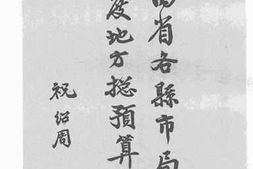 省各縣市局
度地方總預算
祝紹周